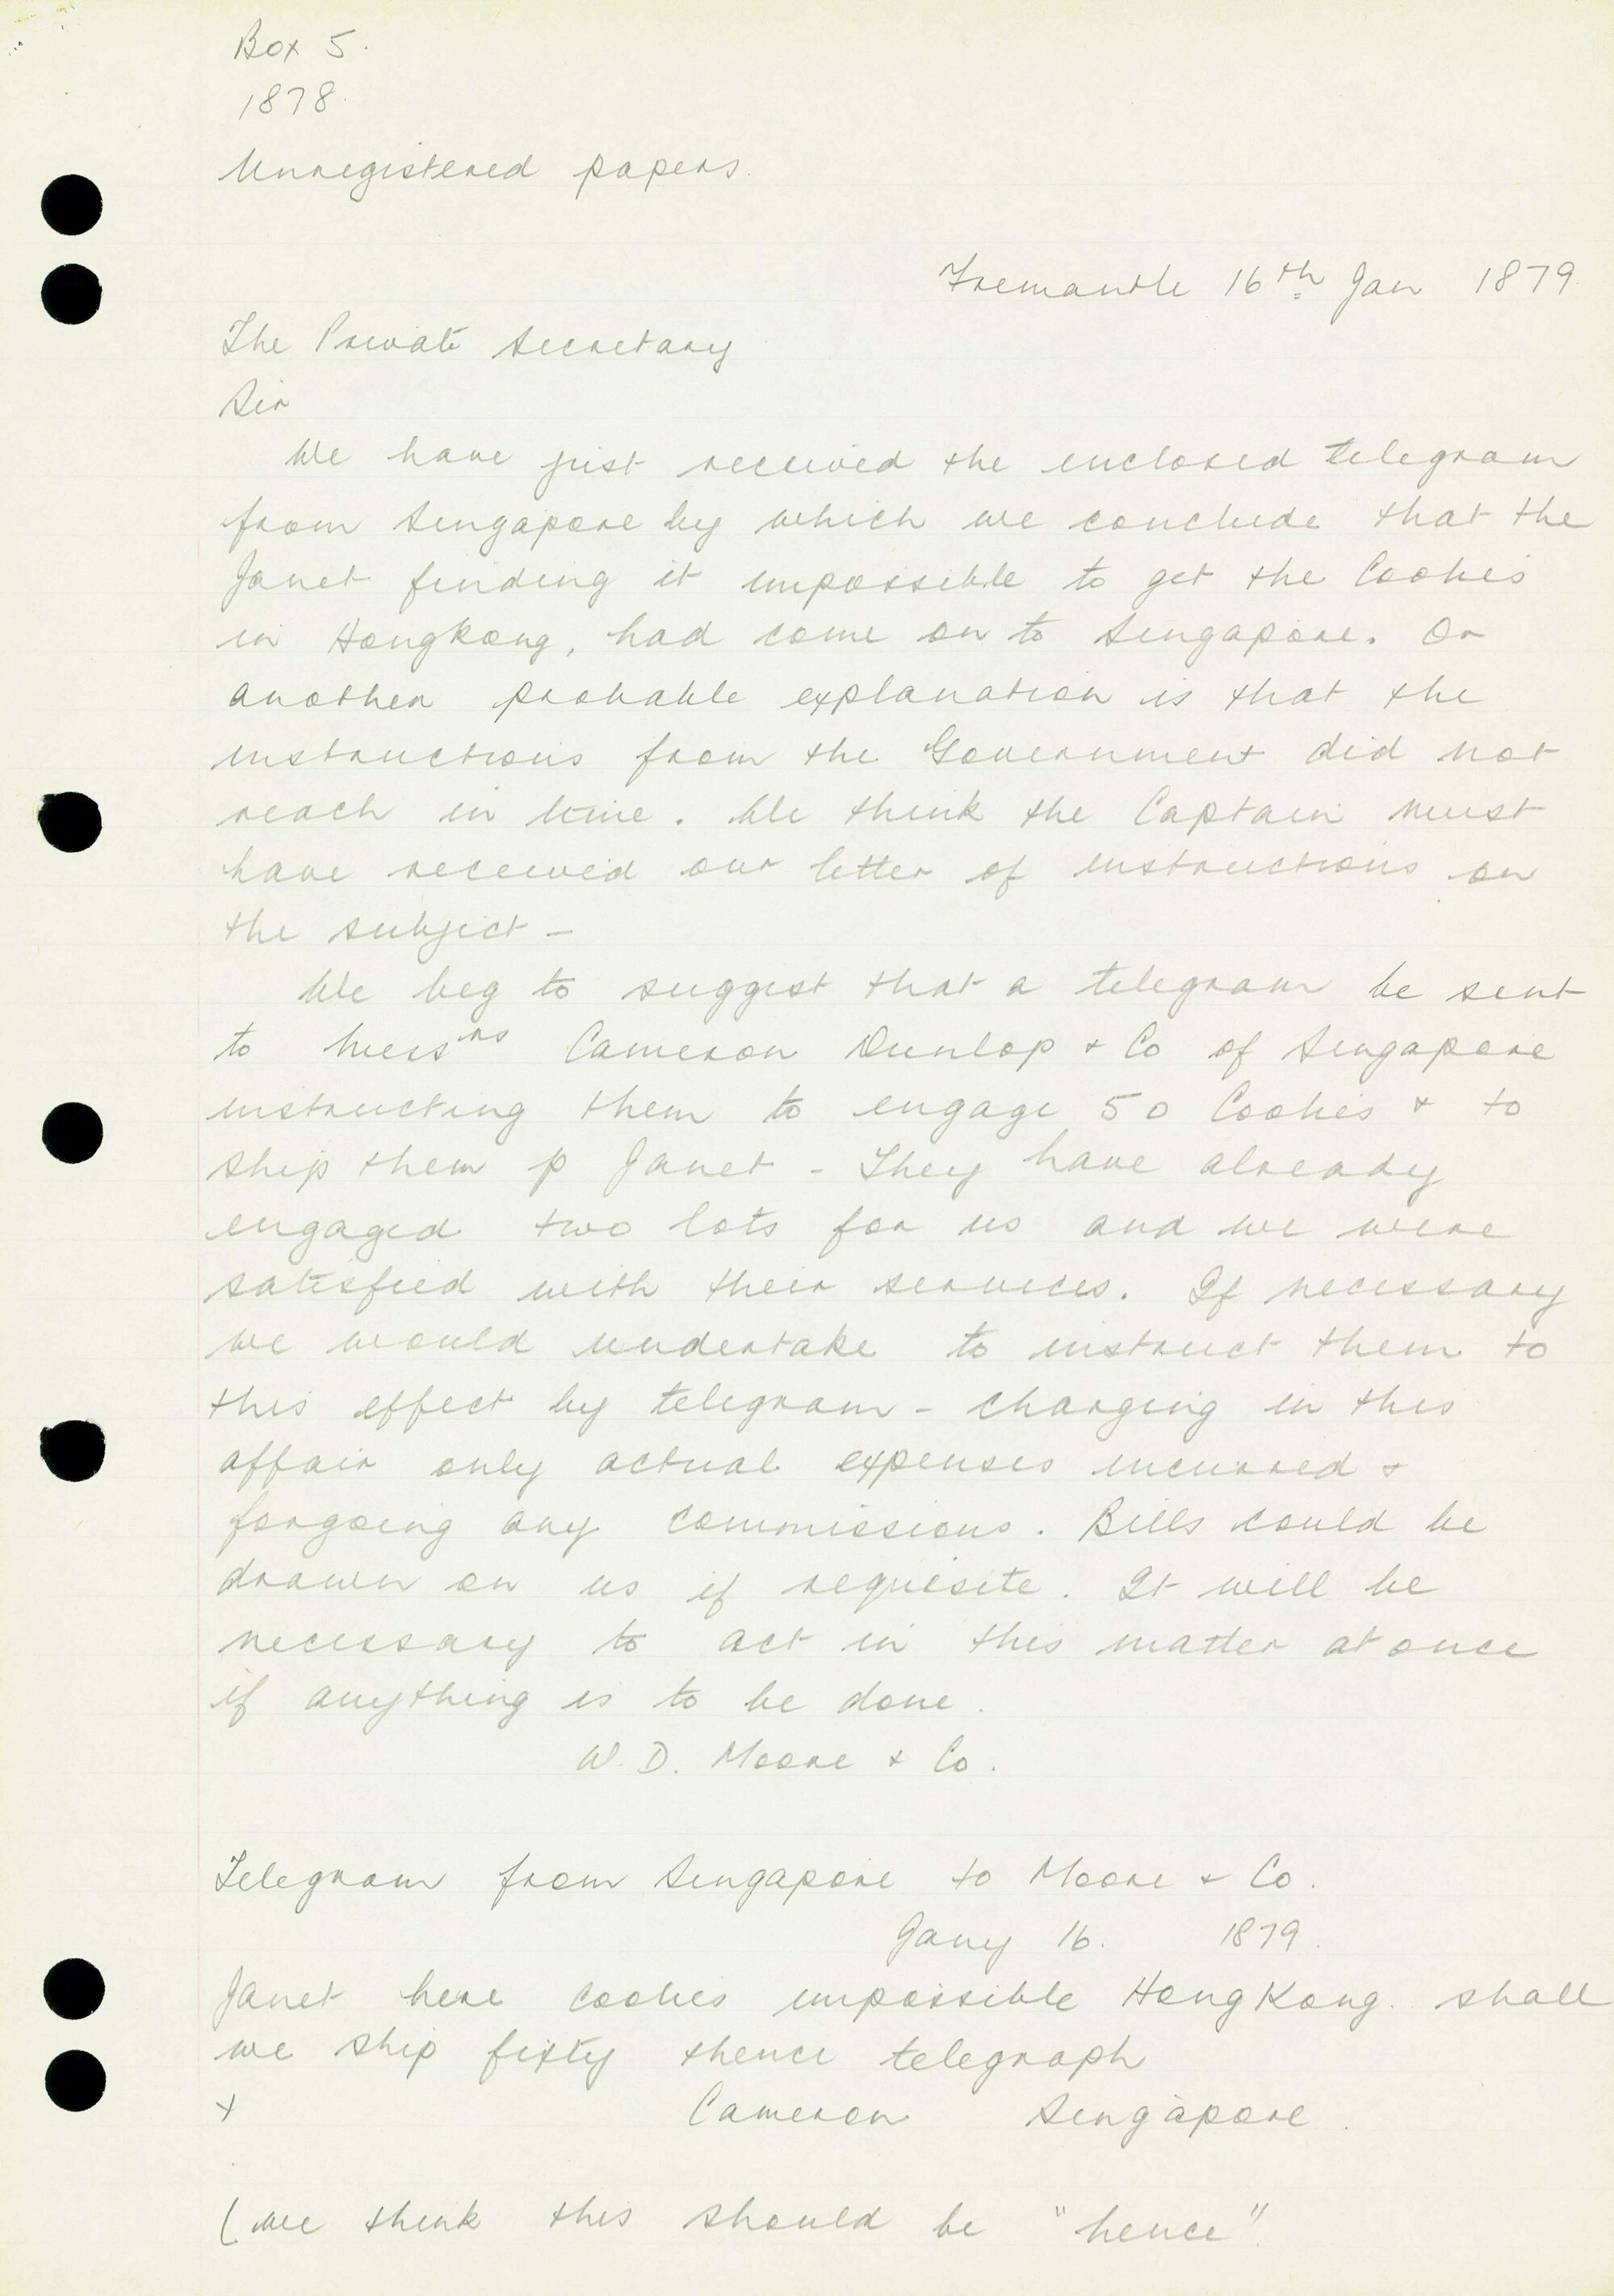 Box 5.
1878.
Unregistered papers.
Fremantle 16th Jan 1879
The Private Secretary
Sir
We have just received the enclosed telegram
from Singapore by which we conclude that the
Janet finding it impossible to get the Coolies
in HongKong, had come on to Singapore. Or
another probable explanation is that the
instructions from the Government did not
reach in time. We think the Captain must
have received our letter of instructions on
the subject -
We beg to suggest that a telegram be sent
to Messrs Cameron Dunlop + Co of Singapore
instructing them to engage 50 Coolies + to
ship them p Janet - They have already
engaged two lots for us and we were
satisfied with their services. If necessary
we would undertake to instruct them to
this effect by telegram - charging in this
affair only actual expenses incurred +
forgoing any commissions. Bills could be
drawn on us if requisite. It will be
necessary to act in this matter at once
if anything is to be done.
W. D. Moore + Co.
Telegram from Singapore to Moore + Co.
Jany 16. 1879.
Janet here coolies impossible Hong Kong. shall
we ship fifty thence telegraph
+ Cameron Singapore.
(we think this should be "hence"